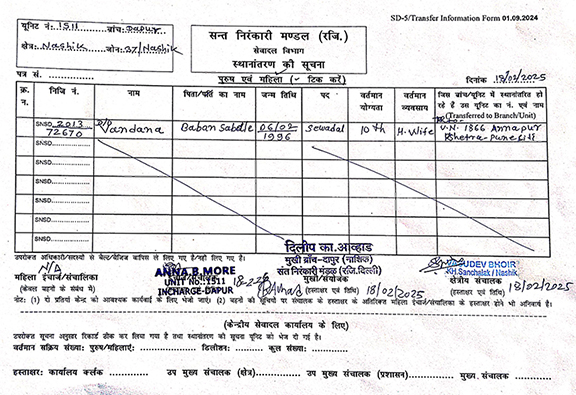 SD-5/Transfer Information Form 01.09.2024
यूनिट नं० : 1511 ब्रांच: Dapur
क्षेत्र: Nashik जोन: 37/Nashik
सन्त निरंकारी मण्डल (रजि.)
सेवादल विभाग
स्थानांतरण की सूचना
पत्र सं. पुरुष एवं महिला (✓ टिक करें) दिनांक 18/02/2025
क्र. न. निजि नं. नाम पिता/पति का नाम जन्म तिथि पद वर्तमान योग्यता वर्तमान व्यवसाय जिस ब्रांच/यूनिट में स्थानांतरित हो रहे हैं उस यूनिट का नं. एवं नाम (Transferred to Branch/Unit)
SNSD 2013 72670 Vandana Baban Sabdle 06/02 1996 sewadal 10th H. Wife U.N. 1866 Annapur Kshetra-Pune
SNSD.
SNSD.
SNSD.
SNSD.
SNSD.
SNSD.
उपरोक्त अधिकारी/सदस्यों से बेल्ट/बैजिज वापिस ले लिए गए हैं/नहीं लिए गए हैं।
N/A
महिला इंचार्ज/संचालिका
(केवल बहनों के संबंध में)
ANNA.B.MORE
UNIT No.:1511
INCHARGE-DAPUR
दिलीप का.आव्हाड
मुखी ब्रॉंच-दापुर (नाशिक)
संत निरंकारी मंडळ (रजि.दिल्ली)
मुखी/संयोजक
(हस्ताक्षर एवं तिथि) 18/02/2025
UDEV BHOIR
KH.Sanchalak / Nashik
क्षेत्रीय संचालक
(हस्ताक्षर एवं तिथि) 18/02/2025
नोट: (1) दो प्रतियां केन्द्र को आवश्यक कार्यवाई के लिए भेजी जाएं। (2) बहनों की सूचियों पर संचालक के हस्ताक्षर के अतिरिक्त महिला इंचार्ज/संचालिका के हस्ताक्षर होने भी अनिवार्य हैं।
(केन्द्रीय सेवादल कार्यालय के लिए)
उपरोक्त सूचना अनुसार रिकार्ड ठीक कर लिया गया है तथा स्थानांतरण की सूचना यूनिट को भेज दी गई है।
वर्तमान सक्रिय संख्या: पुरुष/महिलाएं: डिलीशन: कुल संख्या:
हस्ताक्षर: कार्यालय क्लर्क उप मुख्य संचालक (क्षेत्र) उप मुख्य संचालक (प्रशासन) मुख्य संचालक